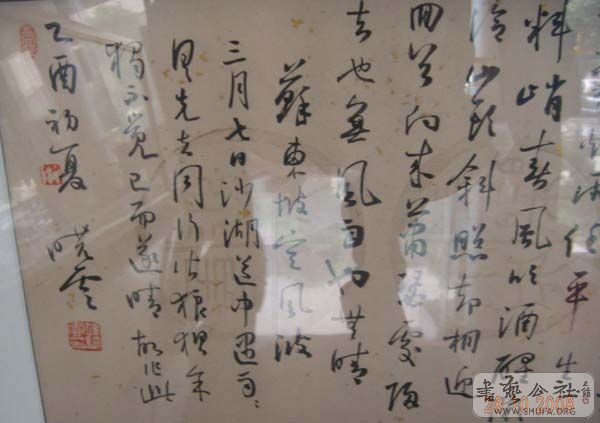 烟雨任平生
料峭春風吹酒醒
冷山頭斜照却相迎
回首向來蕭瑟處歸
去也無風雨也無晴
蘇東坡定風波
三月七日沙湖道中遇雨〻
具先去同行皆狼狽余
獨不覺已而遂晴故作此
乙酉初夏 曉雲
書藝公社
WWW.SHUFA.ORG
28 10 2008